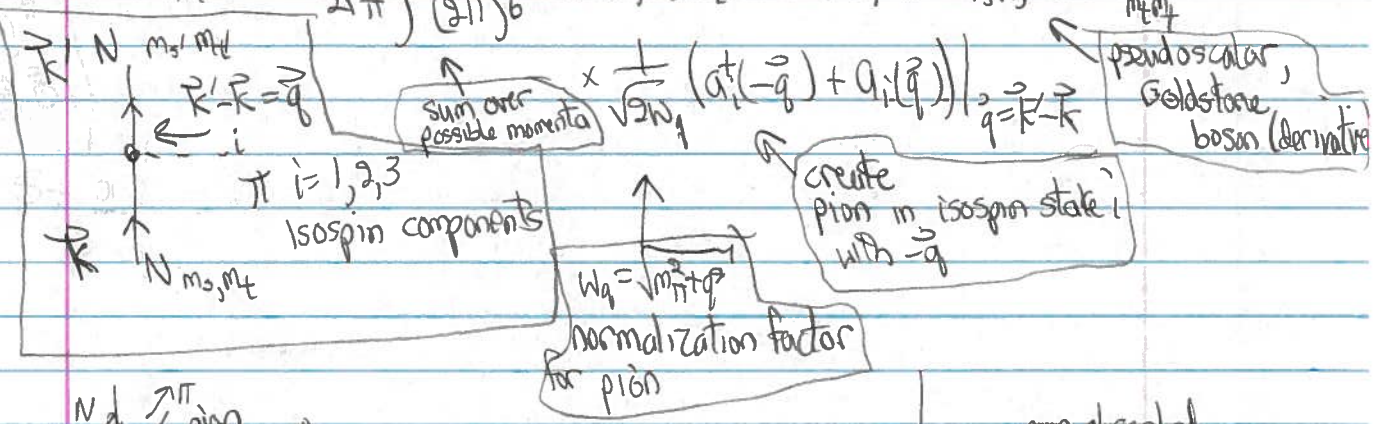 2π ∫ (2π)⁶
m_t' m_t
k⃗' N m_s' m_t'
k⃗'-k⃗ = q⃗
i
π i=1,2,3
Isospin components
k⃗ N m_s, m_t
sum over
possible momenta
× 1/√2w_q (a_i†(-q⃗) + a_i(q⃗))|_q⃗=k⃗'-k⃗
pseudoscalar,
Goldstone
boson (derivative
create
pion in isospin state i
with -q⃗
w_q = √m_π²+q²
normalization factor
for pion
N
π
pion